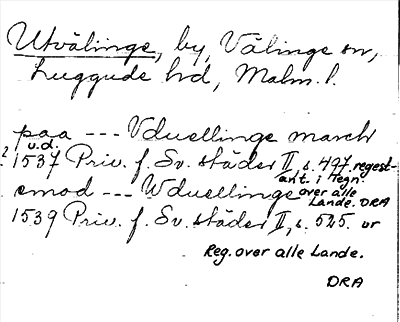 Utvälinge, by, Välinge sn,
Luggude hd, Malm. l.
paa --- Vduellinge march
u.d.
? 1537 Priv. f. Sv. städer II, s. 497 regest-
ant. i Tegn.
emod --- Wduellinge over alle
Lande. DRA
1539 Priv. f. Sv. städer II, s. 525. ur
Reg. over alle Lande.
DRA